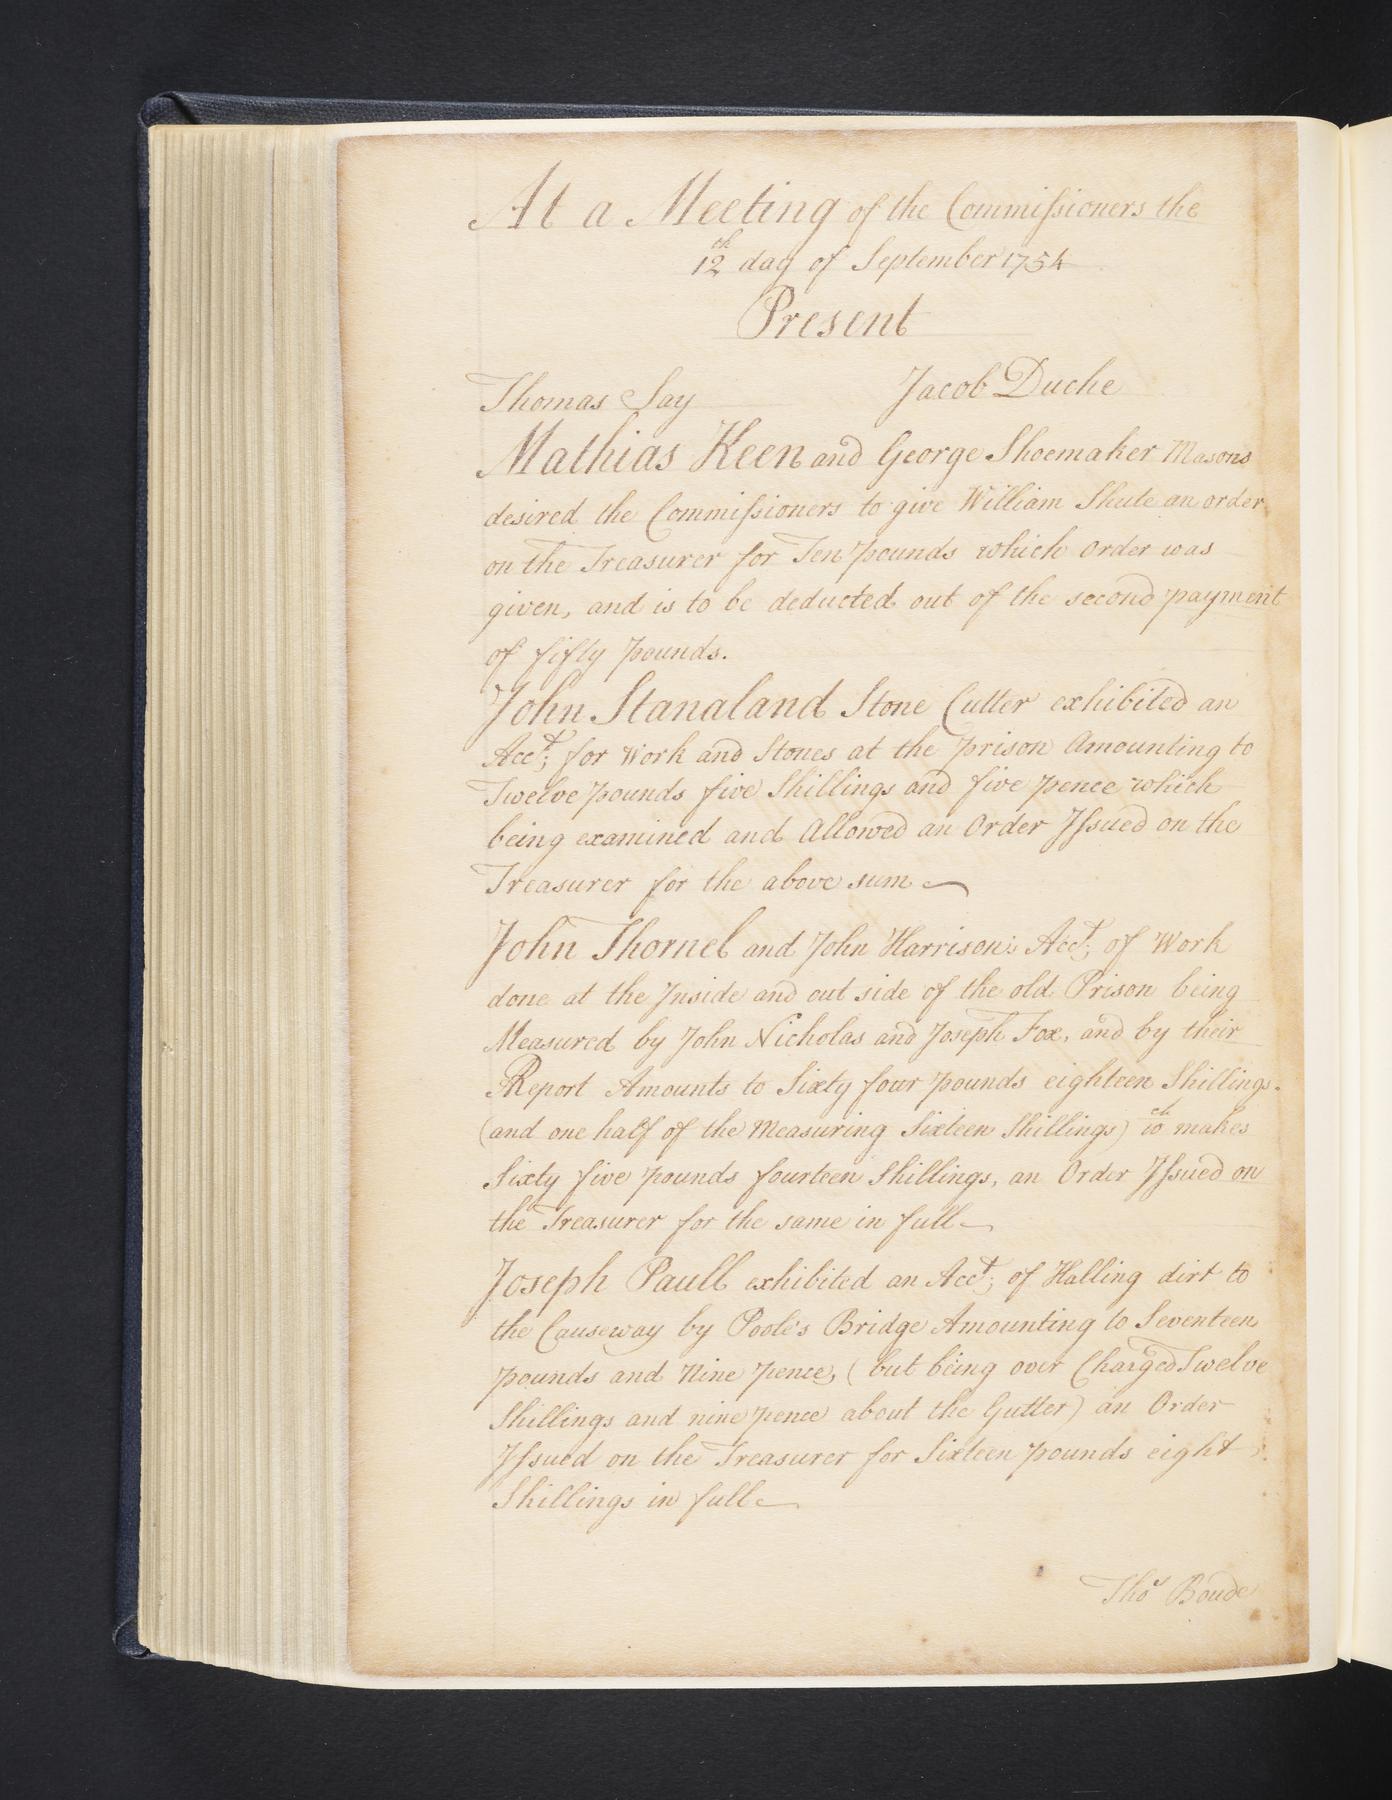 At a Meeting of the Commissioners the
12th day of September 1754
Present
Thomas Say Jacob Duche
Mathias Keen and George Shoemaker Masons
desired the Commissioners to give William Shute an order
on the Treasurer for Ten pounds which order was
given, and is to be deducted out of the second payment
of fifty pounds.
John Stanaland Stone Cutter exhibited an
Acct; for Work and Stones at the prison Amounting to
Twelve pounds five Shillings and five pence which
being examined and Allowed an Order Issued on the
Treasurer for the above sum
John Thornel and John Harrison's Acct; of Work
done at the Inside and out side of the old Prison being
Measured by John Nicholas and Joseph Fox, and by their
Report Amounts to Sixty four pounds eighteen Shillings.
(and one half of the Measuring Sixteen Shillings) wch makes
Sixty five pounds fourteen Shillings, an Order Issued on
the Treasurer for the same in full
Joseph Paull exhibited an Acct; of Halling dirt to
the Causeway by Poole's Bridge Amounting to Seventeen
pounds and Nine pence, (but being over Charged Twelve
Shillings and nine pence about the Gutter) an Order
Issued on the Treasurer for Sixteen pounds eight
Shillings in full
Thos Boude